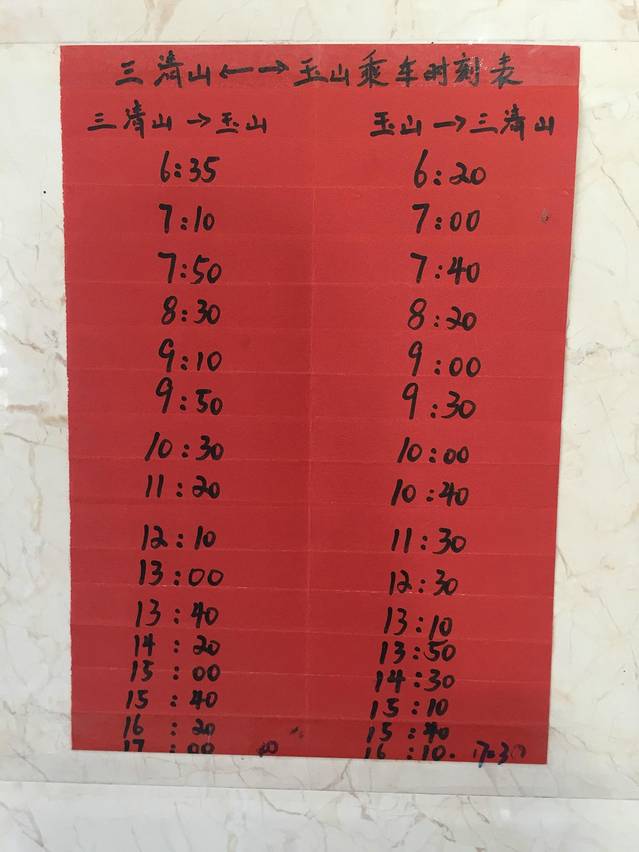 三清山←→玉山乘车时刻表
三清山→玉山 玉山→三清山
6:35 6:20
7:10 7:00
7:50 7:40
8:30 8:20
9:10 9:00
9:50 9:30
10:30 10:00
11:20 10:40
12:10 11:30
13:00 12:30
13:40 13:10
14:20 13:50
15:00 14:30
15:40 15:10
16:20 15:40
17:00 16:10. 17:30